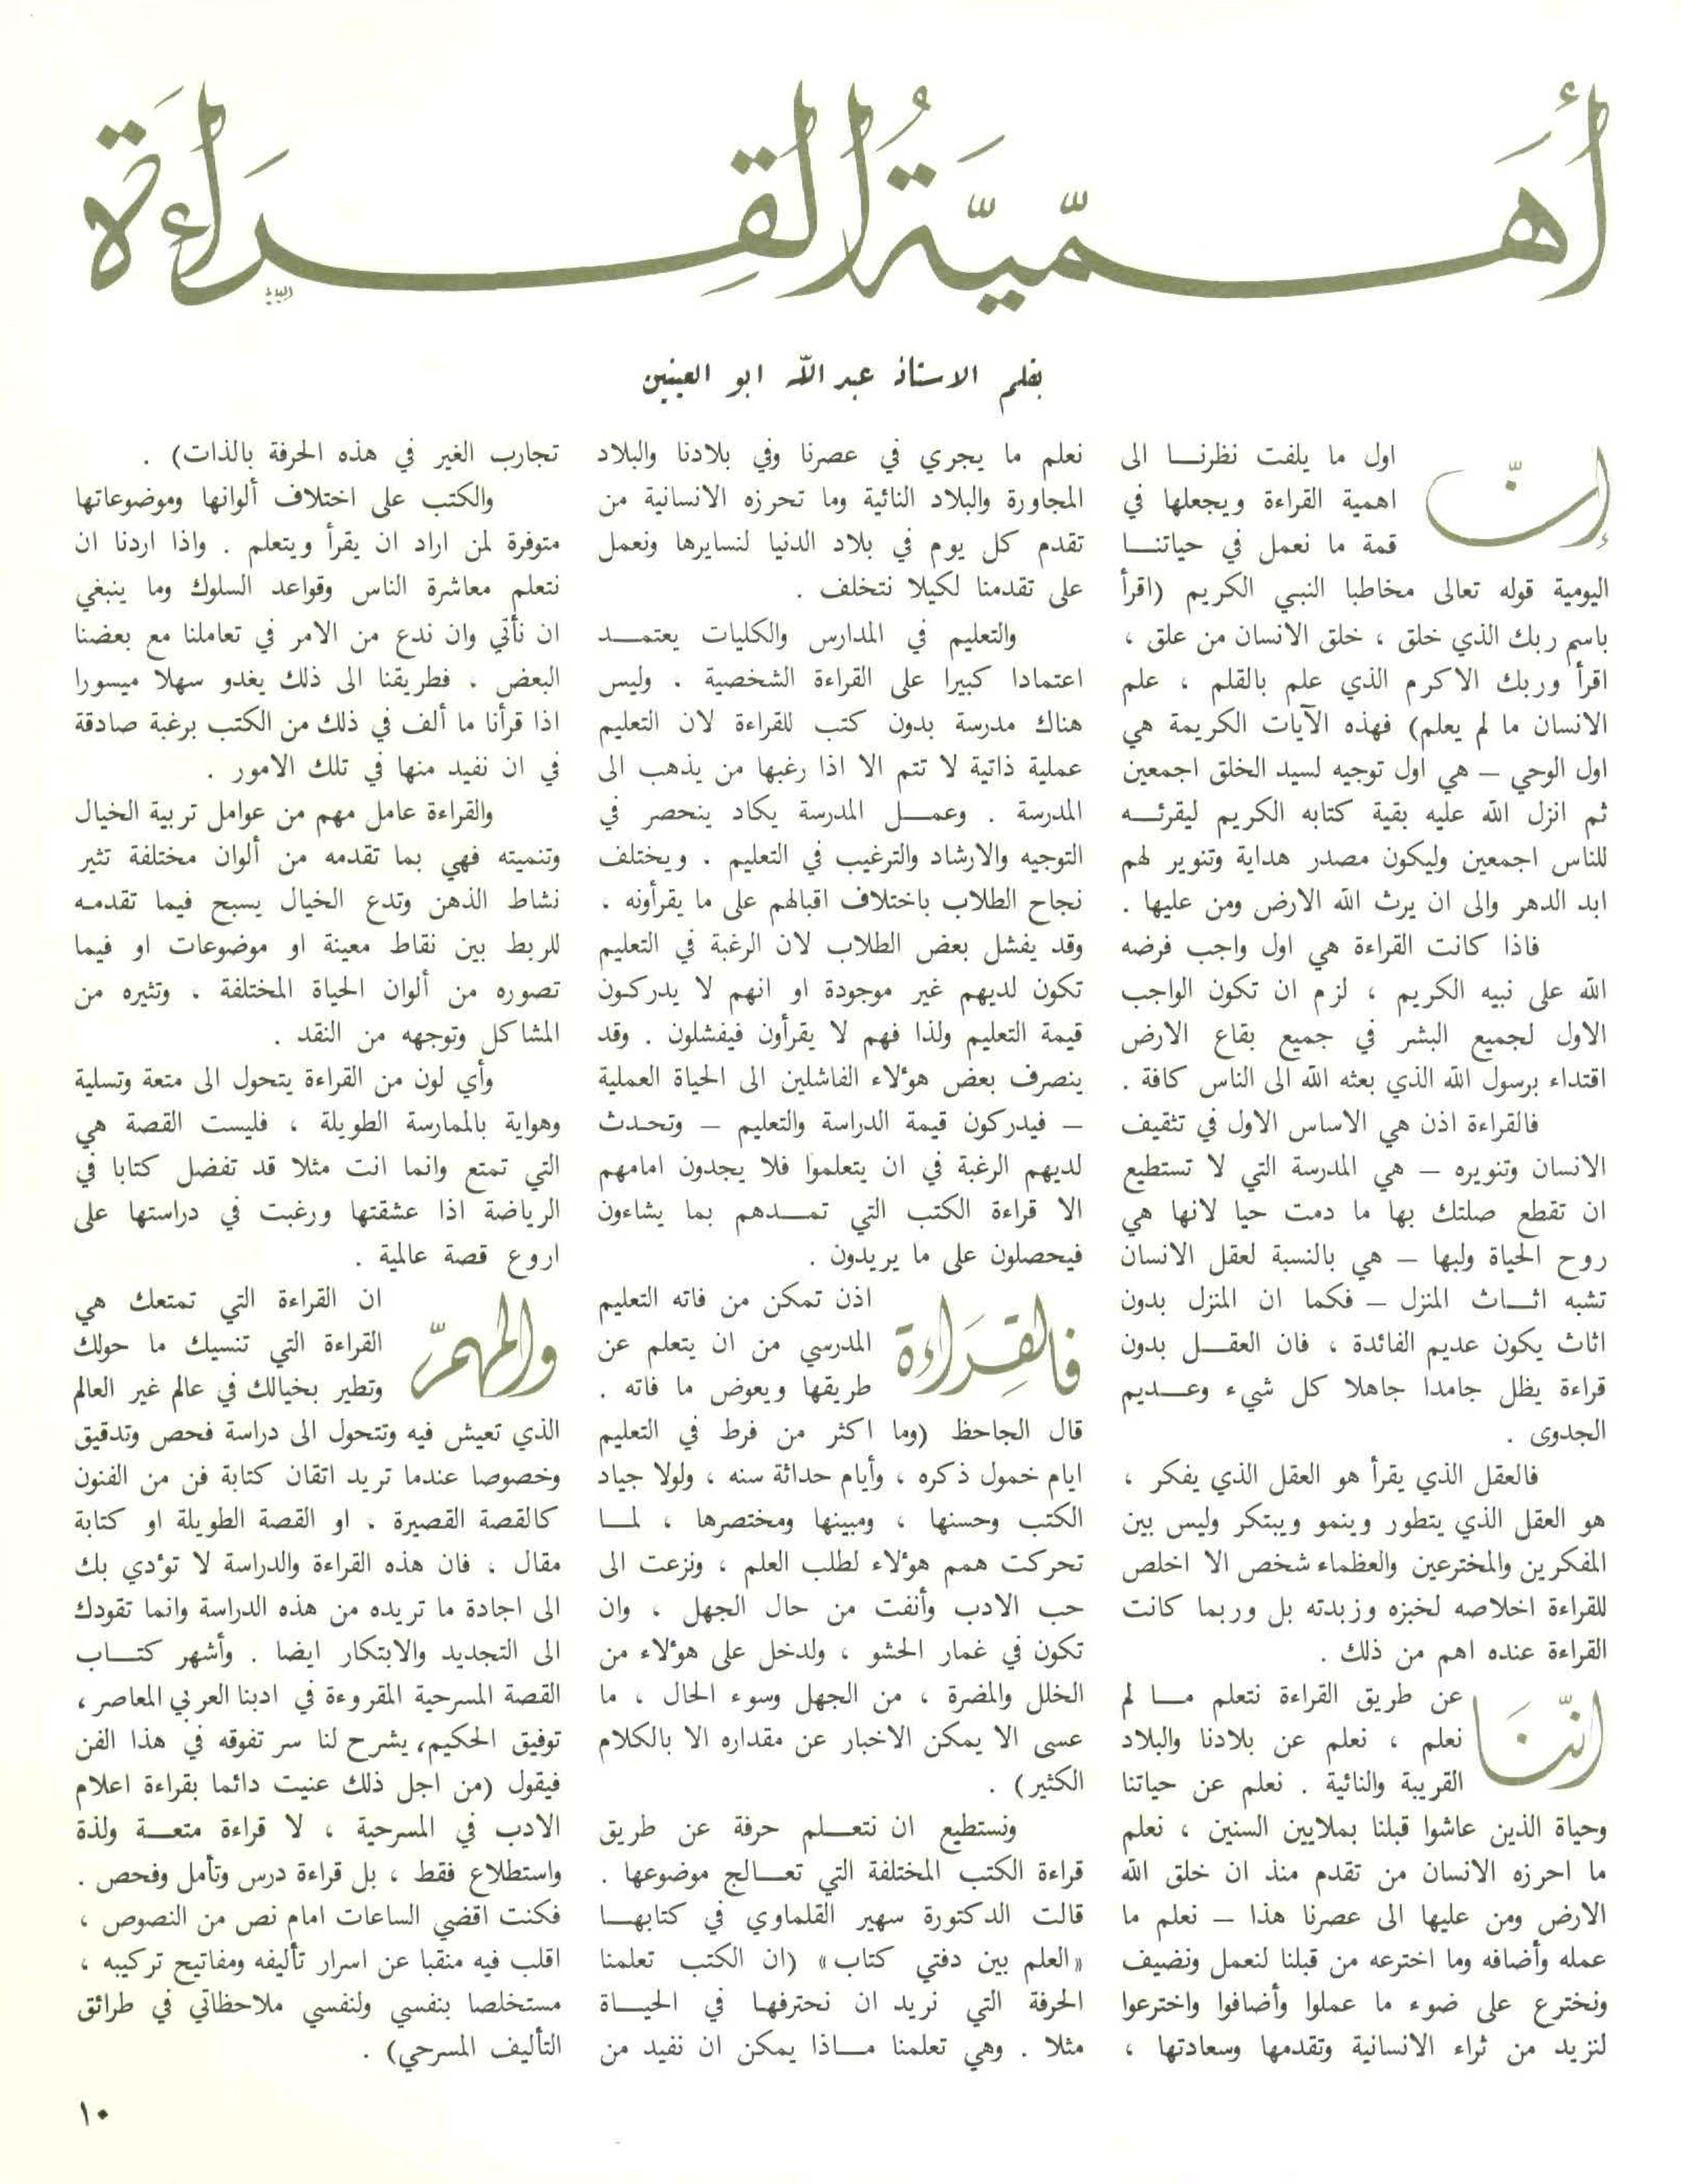 أَهَمِّيَّةُ القِرَاءَة
بقلم الاستاذ عبد الله ابو العينين
إنّ اول ما يلفت نظرنا الى
اهمية القراءة ويجعلها في
قمة ما نعمل في حياتنا
اليومية قوله تعالى مخاطبا النبي الكريم (اقرأ
باسم ربك الذي خلق ، خلق الانسان من علق ،
اقرأ وربك الاكرم الذي علم بالقلم ، علم
الانسان ما لم يعلم) فهذه الآيات الكريمة هي
اول الوحي – هي اول توجيه لسيد الخلق اجمعين
ثم انزل الله عليه بقية كتابه الكريم ليقرئه
للناس اجمعين وليكون مصدر هداية وتنوير لهم
ابد الدهر والى ان يرث الله الارض ومن عليها .
فاذا كانت القراءة هي اول واجب فرضه
الله على نبيه الكريم ، لزم ان تكون الواجب
الاول لجميع البشر في جميع بقاع الارض
اقتداء برسول الله الذي بعثه الله الى الناس كافة .
فالقراءة اذن هي الاساس الاول في تثقيف
الانسان وتنويره – هي المدرسة التي لا تستطيع
ان تقطع صلتك بها ما دمت حيا لانها هي
روح الحياة ولبها – هي بالنسبة لعقل الانسان
تشبه اثاث المنزل – فكما ان المنزل بدون
اثاث يكون عديم الفائدة ، فان العقل بدون
قراءة يظل جامدا جاهلا كل شيء وعديم
الجدوى .
فالعقل الذي يقرأ هو العقل الذي يفكر ،
هو العقل الذي يتطور وينمو ويبتكر وليس بين
المفكرين والمخترعين والعظماء شخص الا اخلص
للقراءة اخلاصه لخبزه وزبدته بل وربما كانت
القراءة عنده اهم من ذلك .
انّنَا عن طريق القراءة نتعلم ما لم
نعلم ، نعلم عن بلادنا والبلاد
القريبة والنائية . نعلم عن حياتنا
وحياة الذين عاشوا قبلنا بملايين السنين ، نعلم
ما احرزه الانسان من تقدم منذ ان خلق الله
الارض ومن عليها الى عصرنا هذا – نعلم ما
عمله وأضافه وما اخترعه من قبلنا لنعمل ونضيف
ونخترع على ضوء ما عملوا وأضافوا واخترعوا
لنزيد من ثراء الانسانية وتقدمها وسعادتها ،
نعلم ما يجري في عصرنا وفي بلادنا والبلاد
المجاورة والبلاد النائية وما تحرزه الانسانية من
تقدم كل يوم في بلاد الدنيا لنسايرها ونعمل
على تقدمنا لكيلا نتخلف .
والتعليم في المدارس والكليات يعتمد
اعتمادا كبيرا على القراءة الشخصية . وليس
هناك مدرسة بدون كتب للقراءة لان التعليم
عملية ذاتية لا تتم الا اذا رغبها من يذهب الى
المدرسة . وعمل المدرسة يكاد ينحصر في
التوجيه والارشاد والترغيب في التعليم . ويختلف
نجاح الطلاب باختلاف اقبالهم على ما يقرأونه .
وقد يفشل بعض الطلاب لان الرغبة في التعليم
تكون لديهم غير موجودة او انهم لا يدركون
قيمة التعليم ولذا فهم لا يقرأون فيفشلون . وقد
ينصرف بعض هؤلاء الفاشلين الى الحياة العملية
– فيدركون قيمة الدراسة والتعليم – وتحدث
لديهم الرغبة في ان يتعلموا فلا يجدون امامهم
الا قراءة الكتب التي تمدهم بما يشاءون
فيحصلون على ما يريدون .
فالقِرَاءة اذن تمكن من فاته التعليم
المدرسي من ان يتعلم عن
طريقها ويعوض ما فاته .
قال الجاحظ (وما اكثر من فرط في التعليم
ايام خمول ذكره ، وأيام حداثة سنه ، ولولا جياد
الكتب وحسنها ، ومبينها ومختصرها ، لما
تحركت همم هؤلاء لطلب العلم ، ونزعت الى
حب الادب وأنفت من حال الجهل ، وان
تكون في غمار الحشو ، ولدخل على هؤلاء من
الخلل والمضرة ، من الجهل وسوء الحال ، ما
عسى الا يمكن الاخبار عن مقداره الا بالكلام
الكثير) .
ونستطيع ان نتعلم حرفة عن طريق
قراءة الكتب المختلفة التي تعالج موضوعها .
قالت الدكتورة سهير القلماوي في كتابها
«العلم بين دفتي كتاب» (ان الكتب تعلمنا
الحرفة التي نريد ان نحترفها في الحياة
مثلا . وهي تعلمنا ماذا يمكن ان نفيد من
تجارب الغير في هذه الحرفة بالذات) .
والكتب على اختلاف ألوانها وموضوعاتها
متوفرة لمن اراد ان يقرأ ويتعلم . واذا اردنا ان
نتعلم معاشرة الناس وقواعد السلوك وما ينبغي
ان نأتي وان ندع من الامر في تعاملنا مع بعضنا
البعض . فطريقنا الى ذلك يغدو سهلا ميسورا
اذا قرأنا ما ألف في ذلك من الكتب برغبة صادقة
في ان نفيد منها في تلك الامور .
والقراءة عامل مهم من عوامل تربية الخيال
وتنميته فهي بما تقدمه من ألوان مختلفة تثير
نشاط الذهن وتدع الخيال يسبح فيما تقدمه
للربط بين نقاط معينة او موضوعات او فيما
تصوره من ألوان الحياة المختلفة . وتثيره من
المشاكل وتوجهه من النقد .
وأي لون من القراءة يتحول الى متعة وتسلية
وهواية بالممارسة الطويلة ، فليست القصة هي
التي تمتع وانما انت مثلا قد تفضل كتابا في
الرياضة اذا عشقتها ورغبت في دراستها على
اروع قصة عالمية .
والمهمّ ان القراءة التي تمتعك هي
القراءة التي تنسيك ما حولك
وتطير بخيالك في عالم غير العالم
الذي تعيش فيه وتتحول الى دراسة فحص وتدقيق
وخصوصا عندما تريد اتقان كتابة فن من الفنون
كالقصة القصيرة . او القصة الطويلة او كتابة
مقال ، فان هذه القراءة والدراسة لا تؤدي بك
الى اجادة ما تريده من هذه الدراسة وانما تقودك
الى التجديد والابتكار ايضا . وأشهر كتاب
القصة المسرحية المقروءة في ادبنا العربي المعاصر ،
توفيق الحكيم، يشرح لنا سر تفوقه في هذا الفن
فيقول (من اجل ذلك عنيت دائما بقراءة اعلام
الادب في المسرحية ، لا قراءة متعة ولذة
واستطلاع فقط ، بل قراءة درس وتأمل وفحص .
فكنت اقضي الساعات امام نص من النصوص ،
اقلب فيه منقبا عن اسرار تأليفه ومفاتيح تركيبه ،
مستخلصا بنفسي ولنفسي ملاحظاتي في طرائق
التأليف المسرحي) .
١٠